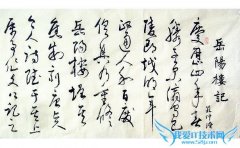 岳陽樓記
范仲淹
慶曆四年春
滕子京謫守巴
陵郡越明年
政通人和百廢
俱興乃重修
岳陽樓增其
舊制刻唐賢
今人詩賦于其上
屬予作文以記之
我爱IT技术网